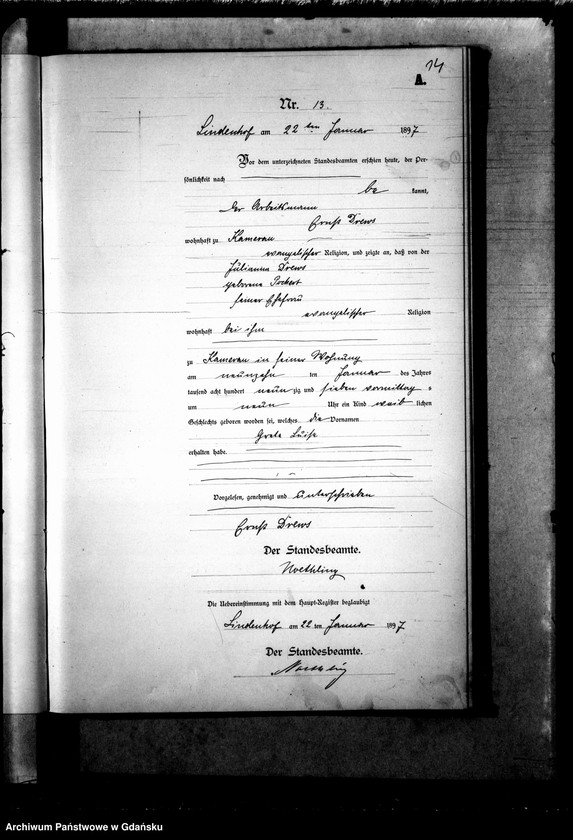 14
A.
Nr. 13.
Lindenhof am 22 ten Januar 1897
Vor dem unterzeichneten Standesbeamten erschien heute, der Per-
sönlichkeit nach
be kannt,
der Arbeitsmann
Ernst Drews
wohnhaft zu Kamerau
evangelischer Religion, und zeigte an, daß von der
Julianna Drews
geborene
seiner Ehefrau
evangelischer Religion
wohnhaft bei ihm
zu Kamerau in seiner Wohnung
am neunzehn ten Januar des Jahres
tausend acht hundert neun zig und sieben vormittag s
um neun Uhr ein Kind weib lichen
Geschlechts geboren worden sei, welches die Vornamen
Grete Luise
erhalten habe.
Vorgelesen, genehmigt und unterschrieben
Ernst Drews
Der Standesbeamte.
Noethling
Die Uebereinstimmung mit dem Haupt-Register beglaubigt
Lindenhof am 22 ten Januar 1897
Der Standesbeamte.
Noethling
Archiwum Państwowe w Gdańsku